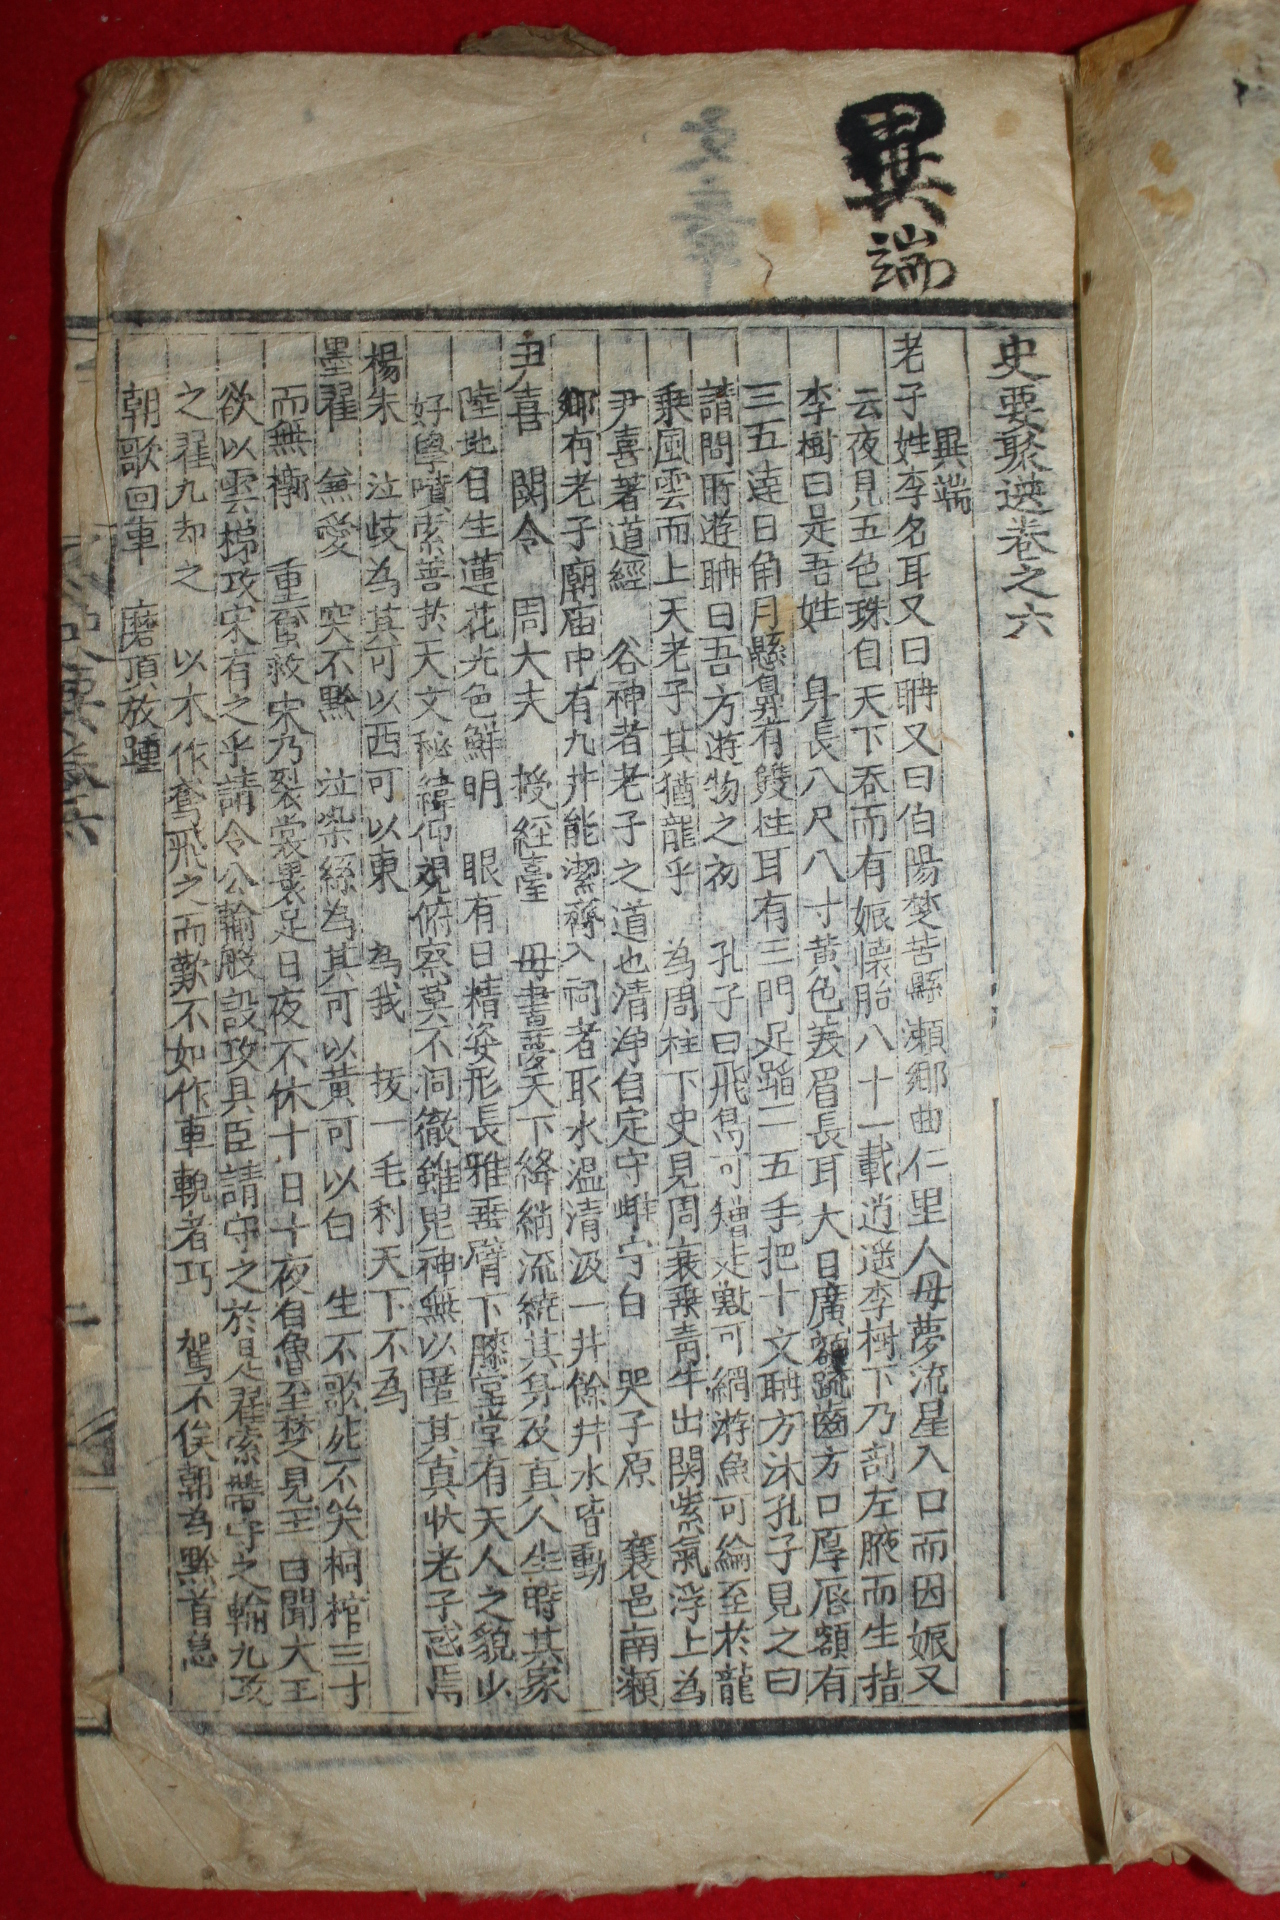 異端
文章
史要聚選卷之六
異端
老子姓李名耳又曰聃又曰伯陽楚苦縣瀬鄉曲仁里人母夢流星入口而因娠又
云夜見五色珠自天下吞而有娠懷胎八十一載逍遥李樹下乃剖左腋而生指
李樹曰是吾姓 身長八尺八寸黃色美眉長耳大目廣額疏齒方口厚唇額有
三五達日角月懸鼻有雙柱耳有三門足蹈二五手把十文聃方沐孔子見之曰
請問所遊聃曰吾方遊物之初 孔子曰飛鳥可矰走獸可網游魚可綸至於龍
乗風雲而上天老子其猶龍乎 為周柱下史見周衰乗青牛出関紫氣浮上為
尹喜著道經 谷神者老子之道也清淨自定守雌守白 哭子原 襄邑南瀬
鄉有老子廟庙中有九井能潔齋入祠者取水温清汲一井餘井水皆動
尹喜 関令 周大夫 授經臺 母晝夢天下絳綃流繞其身及真人生時其家
陸地自生蓮花光色鮮明 眼有日精姿形長雅垂臂下膝堂堂有天人之貌少
好學墳索善於天文秘緯仰視俯察莫不洞徹雖鬼神無以匿其真状老子惑焉
楊朱 泣歧為其可以西可以東 為我 抜一毛利天下不為
墨翟 兼愛 突不黔 泣染絲為其可以黃可以白 生不歌死不笑桐棺三寸
而無槨 重蠒救宋乃裂裳裹足日夜不休十日十夜自魯至楚見王曰聞大王
欲以雲梯攻宋有之乎請令公輸般設攻具臣請守之於是翟索帶守之輸九攻
之翟九却之 以木作鳶飛之而歎不如作車輗者巧 駕不俟朝為黔首急
朝歌回車 磨頂放踵
史要卷六
一